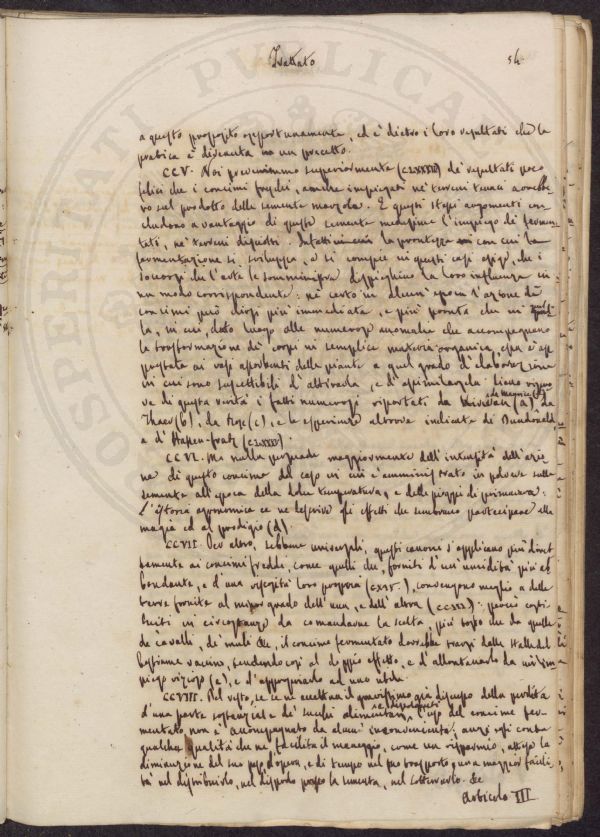 Trattato 54
a questo proposito opportunamente, ed è dietro i loro resultati che la
pratica è divenuta un precetto.
CCV. Noi prevenimmo superiormente (CLXXXII) de' resultati poco
felici che i concimi freddi, anche impiegati ne' terreni tenaci
sul prodotto delle semente marzole. E questi stessi argomenti con-
cludono a vantaggio di queste semente medesime l'impiego de' fermen-
tati, ne' terreni la prontezza con cui la
fermentazione si sviluppa, e si compie in questi casi esige, che i
soccorsi che l'arte le somministra dispieghino la loro influenza in
un modo corrispondente: nè certo in alcun'epoca l'azione di
concimi può dirsi più immediata, e più pronta che in quel-
la, in cui, dato luogo alle numerose anomalie che accompagnano
la trasformazione de' corpi in semplice materia organica, essa è ap-
prestata ai vasi assorbenti delle piante a quel grado d'elaborazione
in cui sono suscettibili d'attirarla, e d'assimilarsela. Siano ripro-
ve di questa verità i fatti numerosi riportati da (a) da
Thaer (b), da (c), e le esperienze altrove indicate di Dundonald
e d'Hassen-fratz (CLXXXI).
CCVI. Ma nulla persuade maggiormente dell'intensità dell'azio-
ne di questo concime del caso in cui è amministrato in polvere sulle
semente all'epoca della dolce temperatura, e delle piogge di primavera:
l'istoria agronomica ce ne descrive gli effetti che sembrano partecipare alla
magia ed al prodigio (d).
CCVII. Per altro, sebbene universali, questi canoni s'applicano più diret-
tamente ai concimi freddi, come quelli che, forniti d'un'umidità più ab-
bondante, e d'una viscosità loro propria (CXIV.), convengono meglio a delle
terre fornite al minor grado dell'una, e dell'altra (CCIII): perciò costi-
tuiti in circostanze da comandarne la scelta, più tosto che da quelle
de' cavalli, de' muli &c, il concime fermentato dovrebbe trarsi dalle stalle del
bestiame vaccino, tendendo così al doppio effetto, e d'allontanarlo da un'im-
piego vizioso (e), e d'appropriarlo ad uno utile.
CCVIII. Del resto, se ce ne eccettua il gravissimo già discusso della perdita
d'una parte sostanziale de' succhi alimentari, l'uso del concime fer-
mentato non è accompagnato da alcun inconveniente; anzi egli conta
qualche qualità che ne facilita il maneggio, come un risparmio, attesa la
diminuzione del suo peso d'opera, e di tempo nel suo trasporto; una maggior facili-
tà nel distribuirlo, nel disporlo presso la sementa, nel sotterrarlo. &c
Articolo III